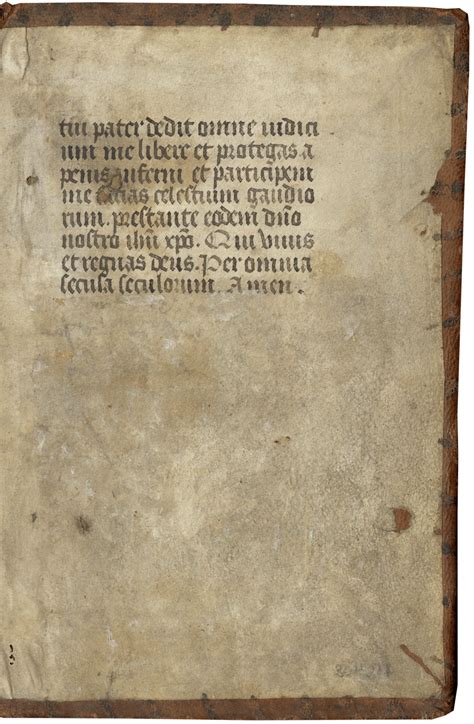 tui pater dedit omne iudici
um me libere et protegas a
penis inferni et participem
me facias celestium gaudio
rum. prestante eodem dño
nostro ihũ xpõ. Qui viuis
et regnas deus. Per omnia
secula seculorum. Amen.